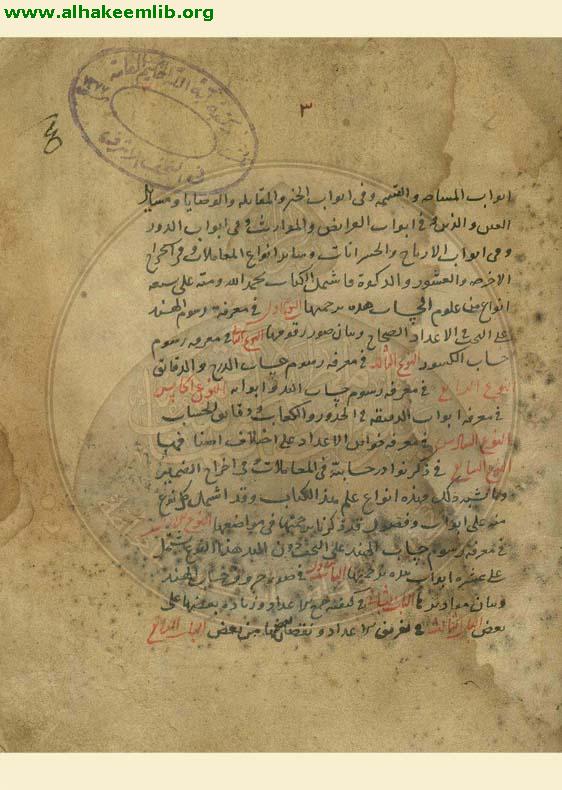 www.alhakeemlib.org
٣
ابواب المساحه والقسمه وفى ابواب الجبر والمقابله والوصايا ومسايل
العين والدين وفى ابواب الفرايض والمواريث وفى ابواب الدور
وفى ابواب الارباح والخسرانات وساير انواع المعاملات وفى الخراج
والعشور والزكوة فاشتمل الكتاب بحمد الله ومنه على سبعه
انواع من علوم الحساب هذه ترجمتها النوع الاول فى معرفة رسوم الهند
على التخت فى الاعداد الصحاح وبيان صور رقومها النوع الثانى فى معرفه رسوم
حساب الكسور النوع الثالث فى معرفه رسوم حساب الدرج والدقائق
النوع الرابع فى معرفه رسوم حساب اليد وابوابه النوع الخامس
فى معرفه ابواب الدقيقه فى الجذور والكعاب ودقائق الحساب
النوع السادس فى معرفه خواص الاعداد على اختلاف اصنافها
النوع السابع فى ذكر نوادر حسابيه فى المعاملات وفى اخراج الضمير
وما اشبه ذلك وهذه انواع علم هذا الكتاب وقد اشتمل كل نوع
منه على ابواب وفصول قد ذكرنا ترجمتها فى مواضعها النوع الاول
فى معرفه رسوم حساب الهند على التخت دون اليد هذا النوع يشتمل
على عشره ابواب هذه ترجمتها الباب الاول فى صور حروف حساب الهند
وبيان الباب الثانى فى كيفيه جمع الاعداد وزياده بعضها على
بعض الباب الثالث فى تفريق الاعداد ونقصان بعضها من بعض الباب الرابع